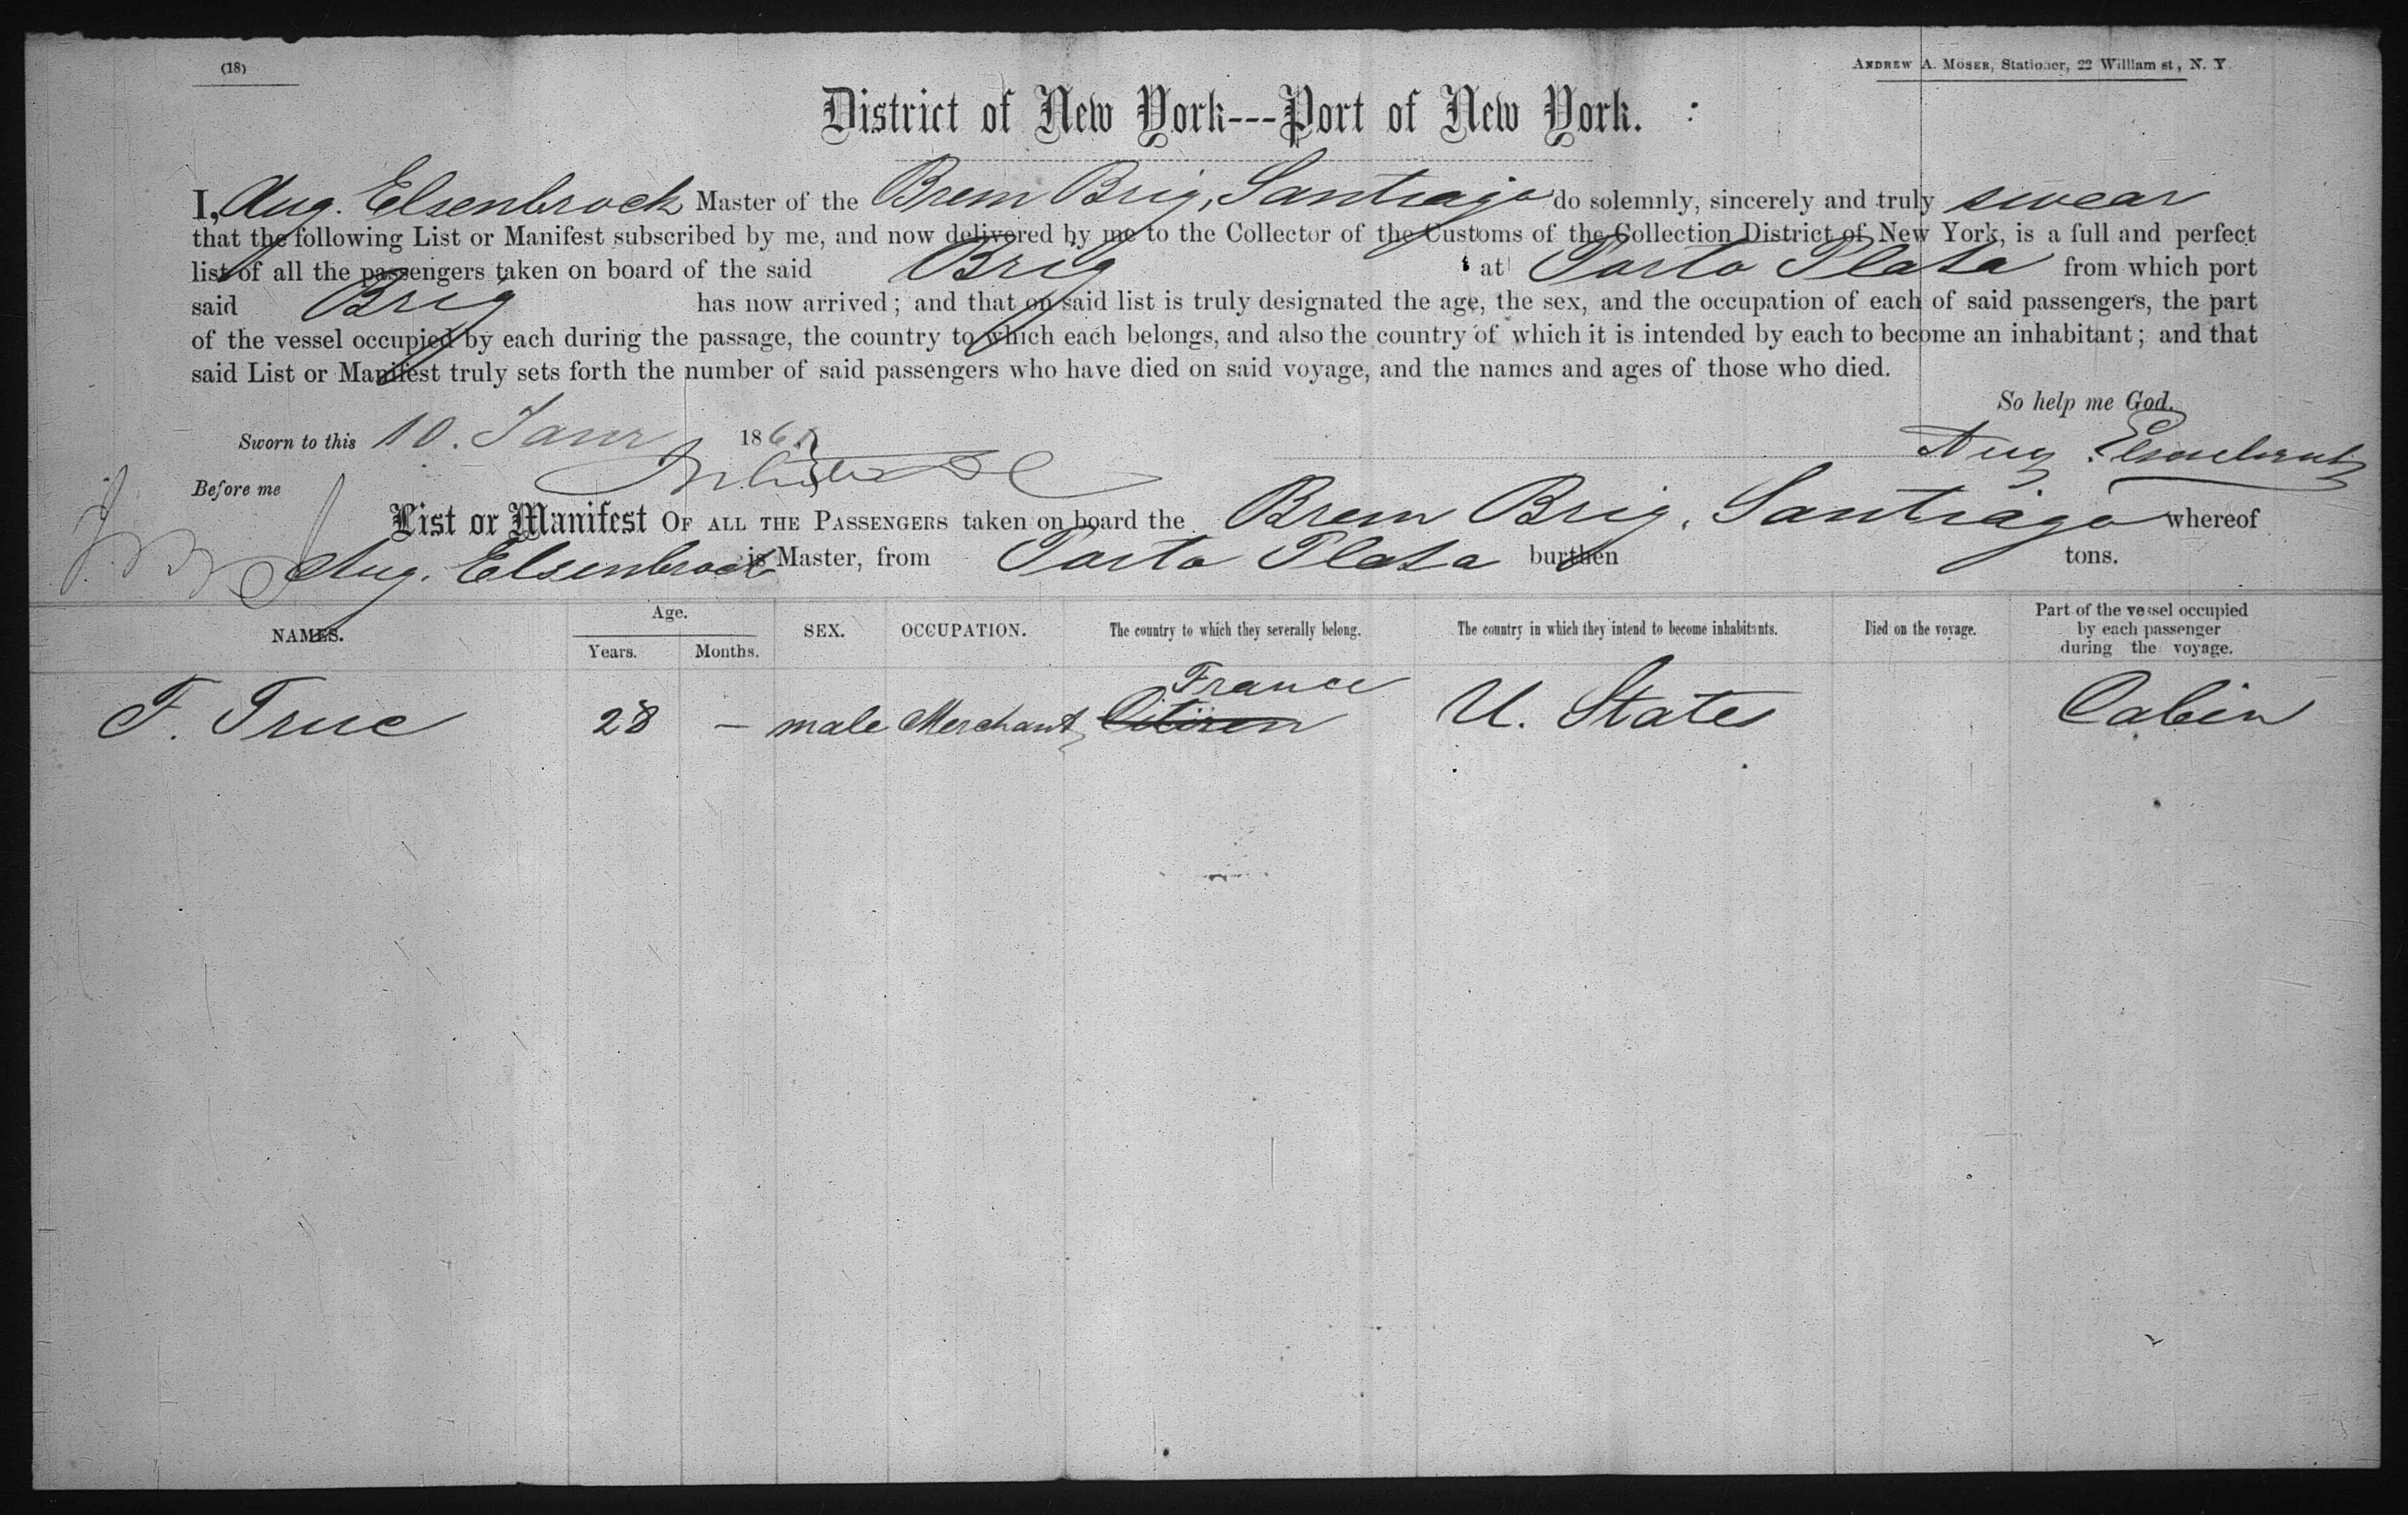 (18)
ANDREW A. MOSER, Stationer, 22 William st, N. Y.
District of New York---Port of New York.
I, Aug. Elsenbrock Master of the Brem Brig, Santiago do solemnly, sincerely and truly swear
that the following List or Manifest subscribed by me, and now delivered by me to the Collector of the Customs of the Collection District of New York, is a full and perfect
list of all the passengers taken on board of the said Brig at Porto Plata from which port
said Brig has now arrived; and that on said list is truly designated the age, the sex, and the occupation of each of said passengers, the part
of the vessel occupied by each during the passage, the country to which each belongs, and also the country of which it is intended by each to become an inhabitant; and that
said List or Manifest truly sets forth the number of said passengers who have died on said voyage, and the names and ages of those who died.
So help me God.
Sworn to this 10. Janr 186
Aug. Elsenbrock
Before me
List or Manifest OF ALL THE PASSENGERS taken on board the Brem Brig. Santiago whereof
Aug. Elsenbrock is Master, from Porto Plata burthen tons.
NAMES. Age. Years. Months. SEX. OCCUPATION. The country to which they severally belong. The country in which they intend to become inhabitants. Died on the voyage. Part of the vessel occupied by each passenger during the voyage.
France
F. True 28 — male Merchant Citizen U. States Cabin